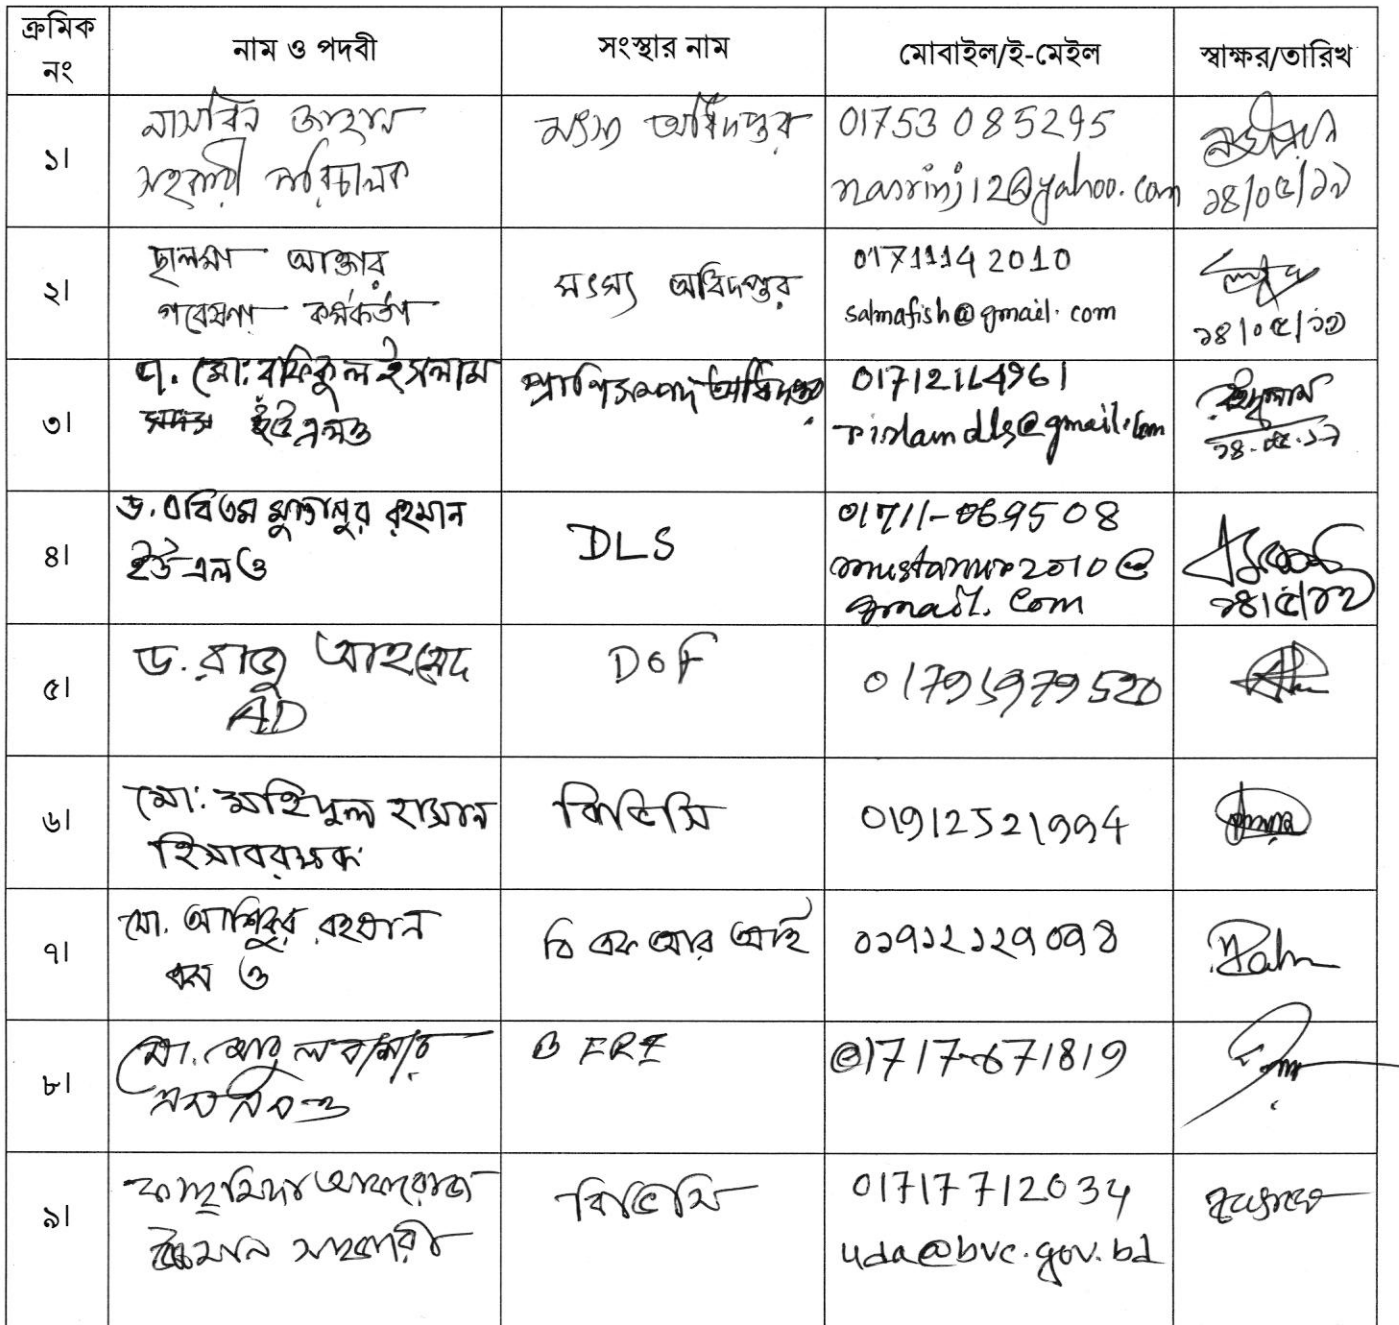 ক্রমিক নং
নাম ও পদবী
সংস্থার নাম
মোবাইল/ই-মেইল
স্বাক্ষর/তারিখ
১।
নাসরিন জাহান
সহকারী পরিচালক
মৎস্য অধিদপ্তর
01753 085295
nasrinj12@yahoo.com
১৪/০৫/১৯
২।
ছালমা আক্তার
গবেষণা কর্মকর্তা
মৎস্য অধিদপ্তর
01711142010
salmafish@gmail.com
১৪/০৫/১৯
৩।
ড. মো: রফিকুল ইসলাম
সদর ইউএলও
প্রাণিসম্পদ অধিদপ্তর
01712164961
rislamdls@gmail.com
১৪.০৫.১৯
৪।
ড. এবিএম মুস্তানুর রহমান
ইউএলও
DLS
01711-069508
mustanur2010@
gmail.com
১৪/৫/১৯
৫।
ড. রাজু আহমেদ
AD
DOF
মো: মহিদুল হাসান
হিসাবরক্ষক
৬।
বিভিসি
01912521994
৭।
মো. আশিকুর রহমান
বি এফ আর আই
০১৯১২১২৯০৭৪
৮।
মো. আবুল বাশার
BFRI
01717-671819
৯।
ফাহমিদা আফরোজ
উচ্চমান সহকারী
বিভিসি
01717712034
uda@bvc.gov.bd